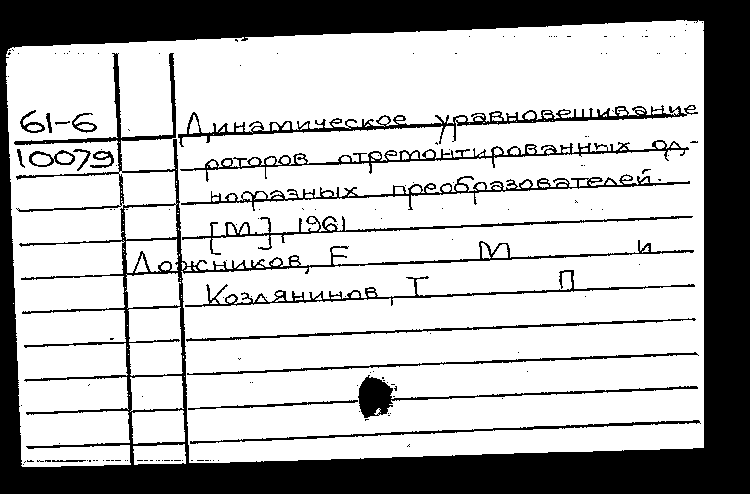 61-6 Динамическое уравновешивание
10079 роторов отремонтированных од-
нофазных преобразователей.
[М.], 1961
Ложников, Е М и
Козлянинов, Т П